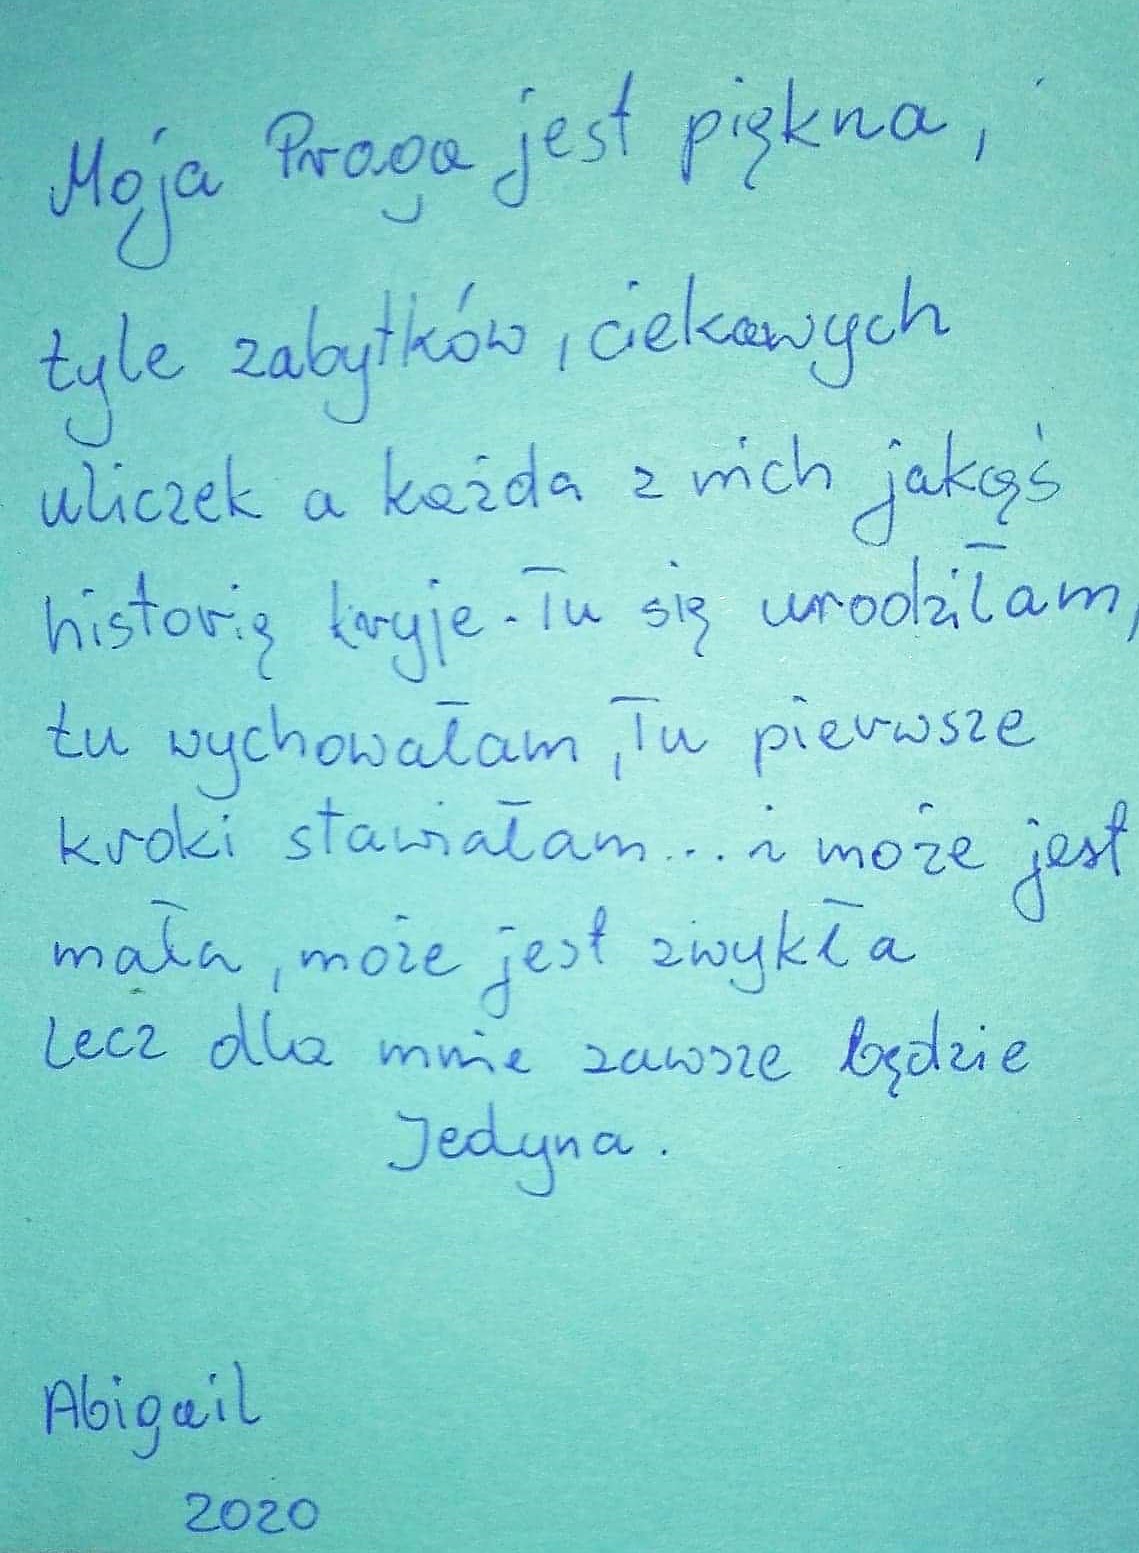 Moja Praga jest piękna,
tyle zabytków, ciekawych
uliczek a każda z nich jakąś
historię kryje. Tu się urodziłam,
tu wychowałam, Tu pierwsze
kroki stawiałam... i może jest
mała, może jest zwykła
lecz dla mnie zawsze będzie
Jedyna.
Abigail
2020